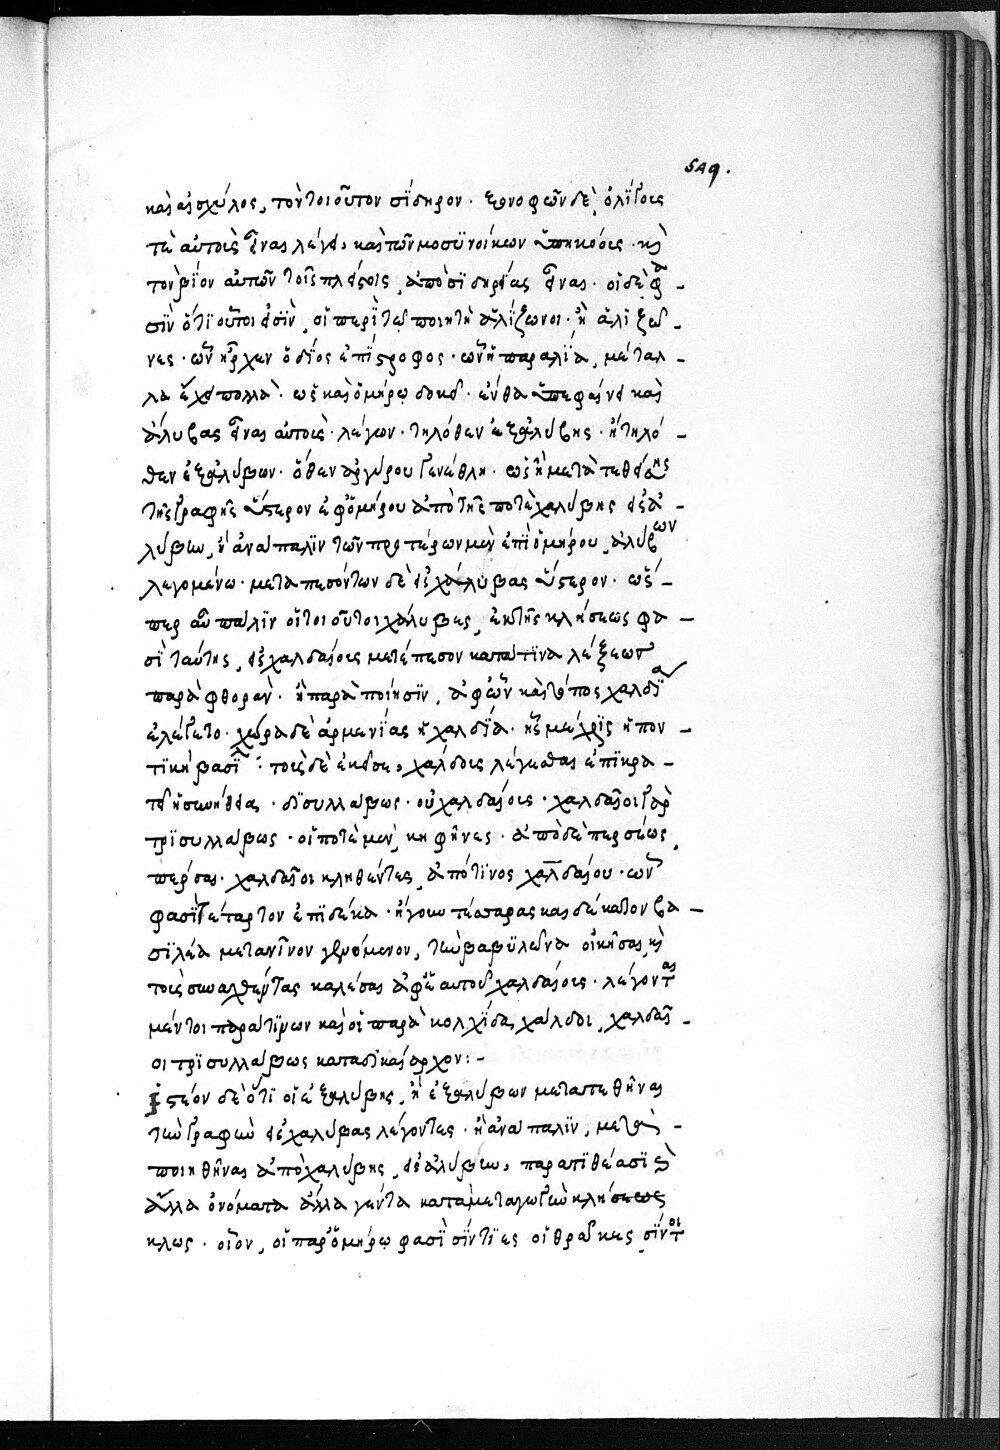 549.
καὶ αἰσχύλος, τὸν τοιοῦτον σίδηρον. ξενοφῶν δὲ, ὀλίγοις
τὲ αὐτοὺς εἶναι λέγει, καὶ τῶν μοσυνοίκων ὑπηκόοις. καὶ
τὸν βίον αὐτῶν τοῖς πλείοσι, ἀπὸ σιδηρείας εἶναι. οἱ δὲ φα -
σὶν ὅτι οὗτοι εἰσὶν, οἱ περὶ τῷ ποιητῇ ἁλίζωνοι. ἢ ἁλιζῶ -
νες. ὧν ἦρχεν ὁ δῖος ἐπίστροφος. ὧν ἡ παραλία, μέταλ -
λα ἔχει πολλά. ὡς καὶ ὁμήρῳ δοκεῖ. ἔνθα ὑπεφαίνει καὶ
ἀλύβας εἶναι αὐτοὺς. λέγων. τηλόθεν ἐξ ἀλύβης. ἢ τηλό -
θεν ἐξ ἀλύβων. ὅθεν ἀργύρου γενέθλη. ὡς ἢ μετατεθείσης
τῆς γραφῆς ὕστερον ἐφ ὁμήρου ἀπὸ τῆς ποτὲ χαλύβης εἰς ἀ -
λύβην, ἢ ἀνάπαλιν τῶν προτέρων μὲν ἐπὶ ὁμήρου, ἀλύβων
λεγομένων. μεταπεσόντων δὲ εἰς χάλυβας ὕστερον. ὥσ -
περ αὖ πάλιν οἵτοι οὗτοι χάλυβες, ἐκ τῆς κλήσεως φα -
σὶ ταύτης, εἰς χαλδαίοις μετέπεσον κατά τινα λέξεων
παραφθορὰν. ἢ παραποίησιν, ἀφ ὧν καὶ τόπος χαλδία
ἐλέγετο. χώρα δὲ ἀρμενίας ἡ χαλδία. ἧς μέχρις ἡ πον -
τικὴ βασιλ : τοὺς δὲ ἐκεῖσε, χάλδοις λέγεσθαι ἐπικρα -
τεῖ ἡ συνήθεια. δισυλλάβως. οὐ χαλδαίοις. χαλδαῖοι γὰρ
τρισυλλάβως. οἱ ποτὲ μὲν, κηφῆνες. ἀπὸ δὲ περσέως,
πέρσαι. χαλδαῖοι κληθέντες, ἀπό τινος χαλδαίου. ὧν
φασὶ τέταρτον ἐπὶ δέκα. ἤγουν τέσσαρας καὶ δέκατον βα -
σιλέα μετὰ νῖνον γενόμενον, τὴν βαβυλῶνα οἰκῆσαι, καὶ
τοὺς συναχθέντας καλέσαι ἀφ ἑαυτοῦ χαλδαίοις. λέγονται
μέντοι παρά τινων καὶ οἱ παρὰ κολχίδα χάλδοι, χαλδαῖ -
οι τρισυλλάβως κατὰ δικαίαρχον: -
Ἰστέον δὲ ὅτι οἱ ἐξ ἀλύβης, ἢ ἐξ ἀλύβων μετατεθῆναι
τὴν γραφὴν εἰς χάλυβας λέγοντες. ἢ ἀνάπαλιν, μετα -
ποιηθῆναι ἀπὸ χαλύβης, εἰς ἀλύβην, παρατιθέασι καὶ
ἄλλα ὀνόματα ἀλλαγέντα κατὰ μεταγωγὴν κλήσεως
κλως. οἷον, οἱ παρ ὁμήρῳ φασὶ σίντιες οἱ θρᾷκες, σίντοι